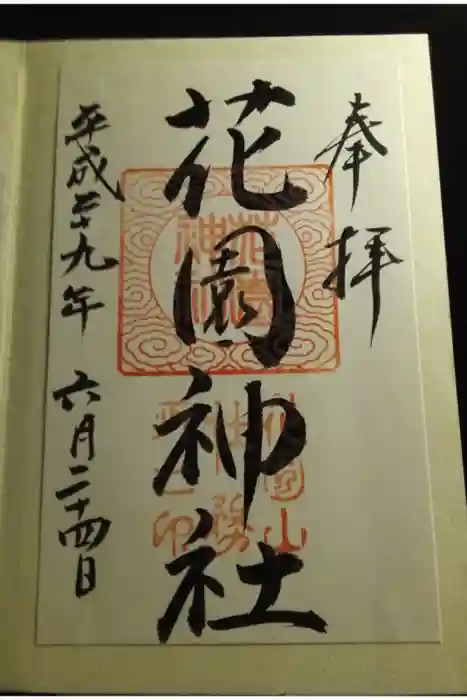 奉拝
花園神社
平成二十九年 六月二十四日